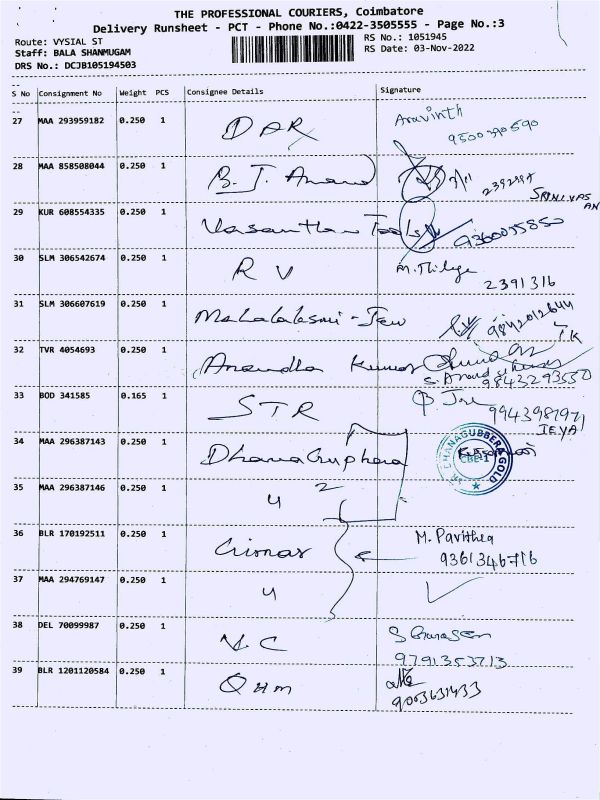 THE PROFESSIONAL COURIERS, Coimbatore
Delivery Runsheet - PCT - Phone No.:0422-3505555 - Page No.:3
Route: VYSIAL ST
RS No.: 1051945
Staff: BALA SHANMUGAM
RS Date: 03-Nov-2022
DRS No.: DCJB105194503
S No Consignment No Weight PCS Consignee Details Signature
27 MAA 293959182 0.250 1 DAR Aravinth
28 MAA 858508044 0.250 1 B. J. Anand
SRINIVASAN
29 KUR 608554335 0.250 1 Vasantham Tools
30 SLM 306542674 0.250 1 R V M. Thilaga
2391316
31 SLM 306607619 0.250 1 Mahalakshmi - Jew 9842012644
32 TVR 4054693 0.250 1 Anandha Kumar
9843293550
33 BOD 341585 0.165 1 STR
34 MAA 296387143 0.250 1
35 MAA 296387146 0.250 1 4 2
36 BLR 170192511 0.250 1 M. Pavithra
9361346716
37 MAA 294769147 0.250 1 4
38 DEL 70099987 0.250 1 V. C
9791353713
39 BLR 1201120584 0.250 1
9003631433